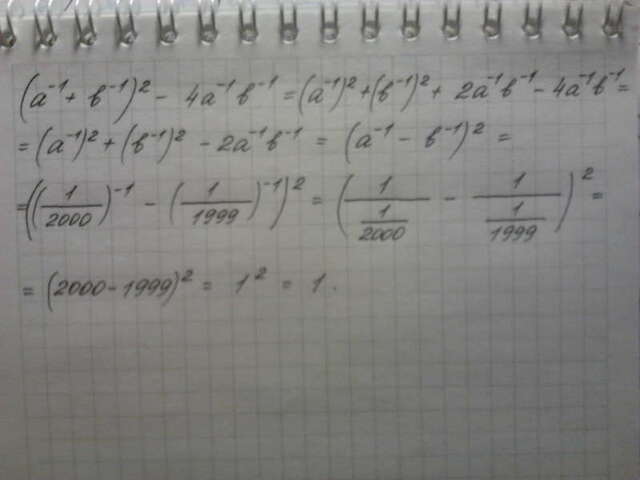 (a⁻¹ + b⁻¹)² - 4a⁻¹b⁻¹ = (a⁻¹)² + (b⁻¹)² + 2a⁻¹b⁻¹ - 4a⁻¹b⁻¹ =
= (a⁻¹)² + (b⁻¹)² - 2a⁻¹b⁻¹ = (a⁻¹ - b⁻¹)² =
= ((1/2000)⁻¹ - (1/1999)⁻¹)² = (1/(1/2000) - 1/(1/1999))² =
= (2000 - 1999)² = 1² = 1.